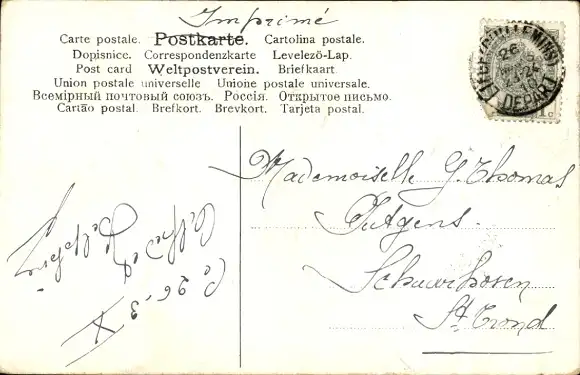 Imprimé
Carte postale. Postkarte. Cartolina postale.
Dopisnice. Correspondenzkarte Levelező-Lap.
Post card Weltpostverein. Briefkaart.
Union postale universelle Unione postale universale.
Всемірный почтовый союзъ. Россія. Открытое письмо.
Cartão postal. Brefkort. Brevkort. Tarjeta postal.
LIEGE (GUILLEMINS)
DEPART
1c
Mademoiselle G. Thomas
Putgens.
Schuurhoven
St. Trond
Ce 26-3
X